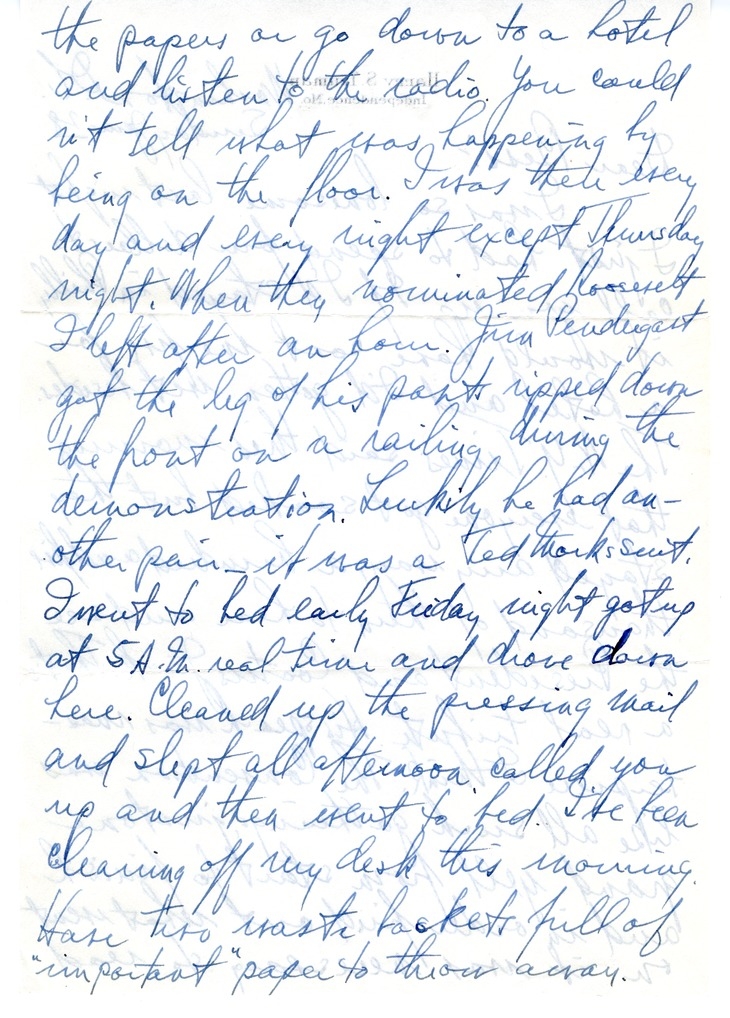 the papers or go down to a hotel
and listen to the radio. You could
n't tell what was happening by
being on the floor. I was there every
day and every night except Thursday
night. When they nominated Roosevelt
I left after an hour. Jim Pendergast
got the leg of his pants ripped down
the front on a railing during the
demonstration. Luckily he had an-
other pair - it was a Ted Marks suit.
I went to bed early Friday night got up
at 5 A.M. real time and drove down
here. Cleaned up the pressing mail
and slept all afternoon, called you
up and then went to bed. I've been
cleaning off my desk this morning.
Have two waste baskets full of
"important" paper to throw away.